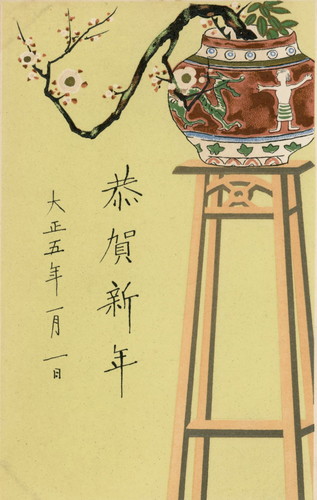 恭賀新年
大正五年一月一日